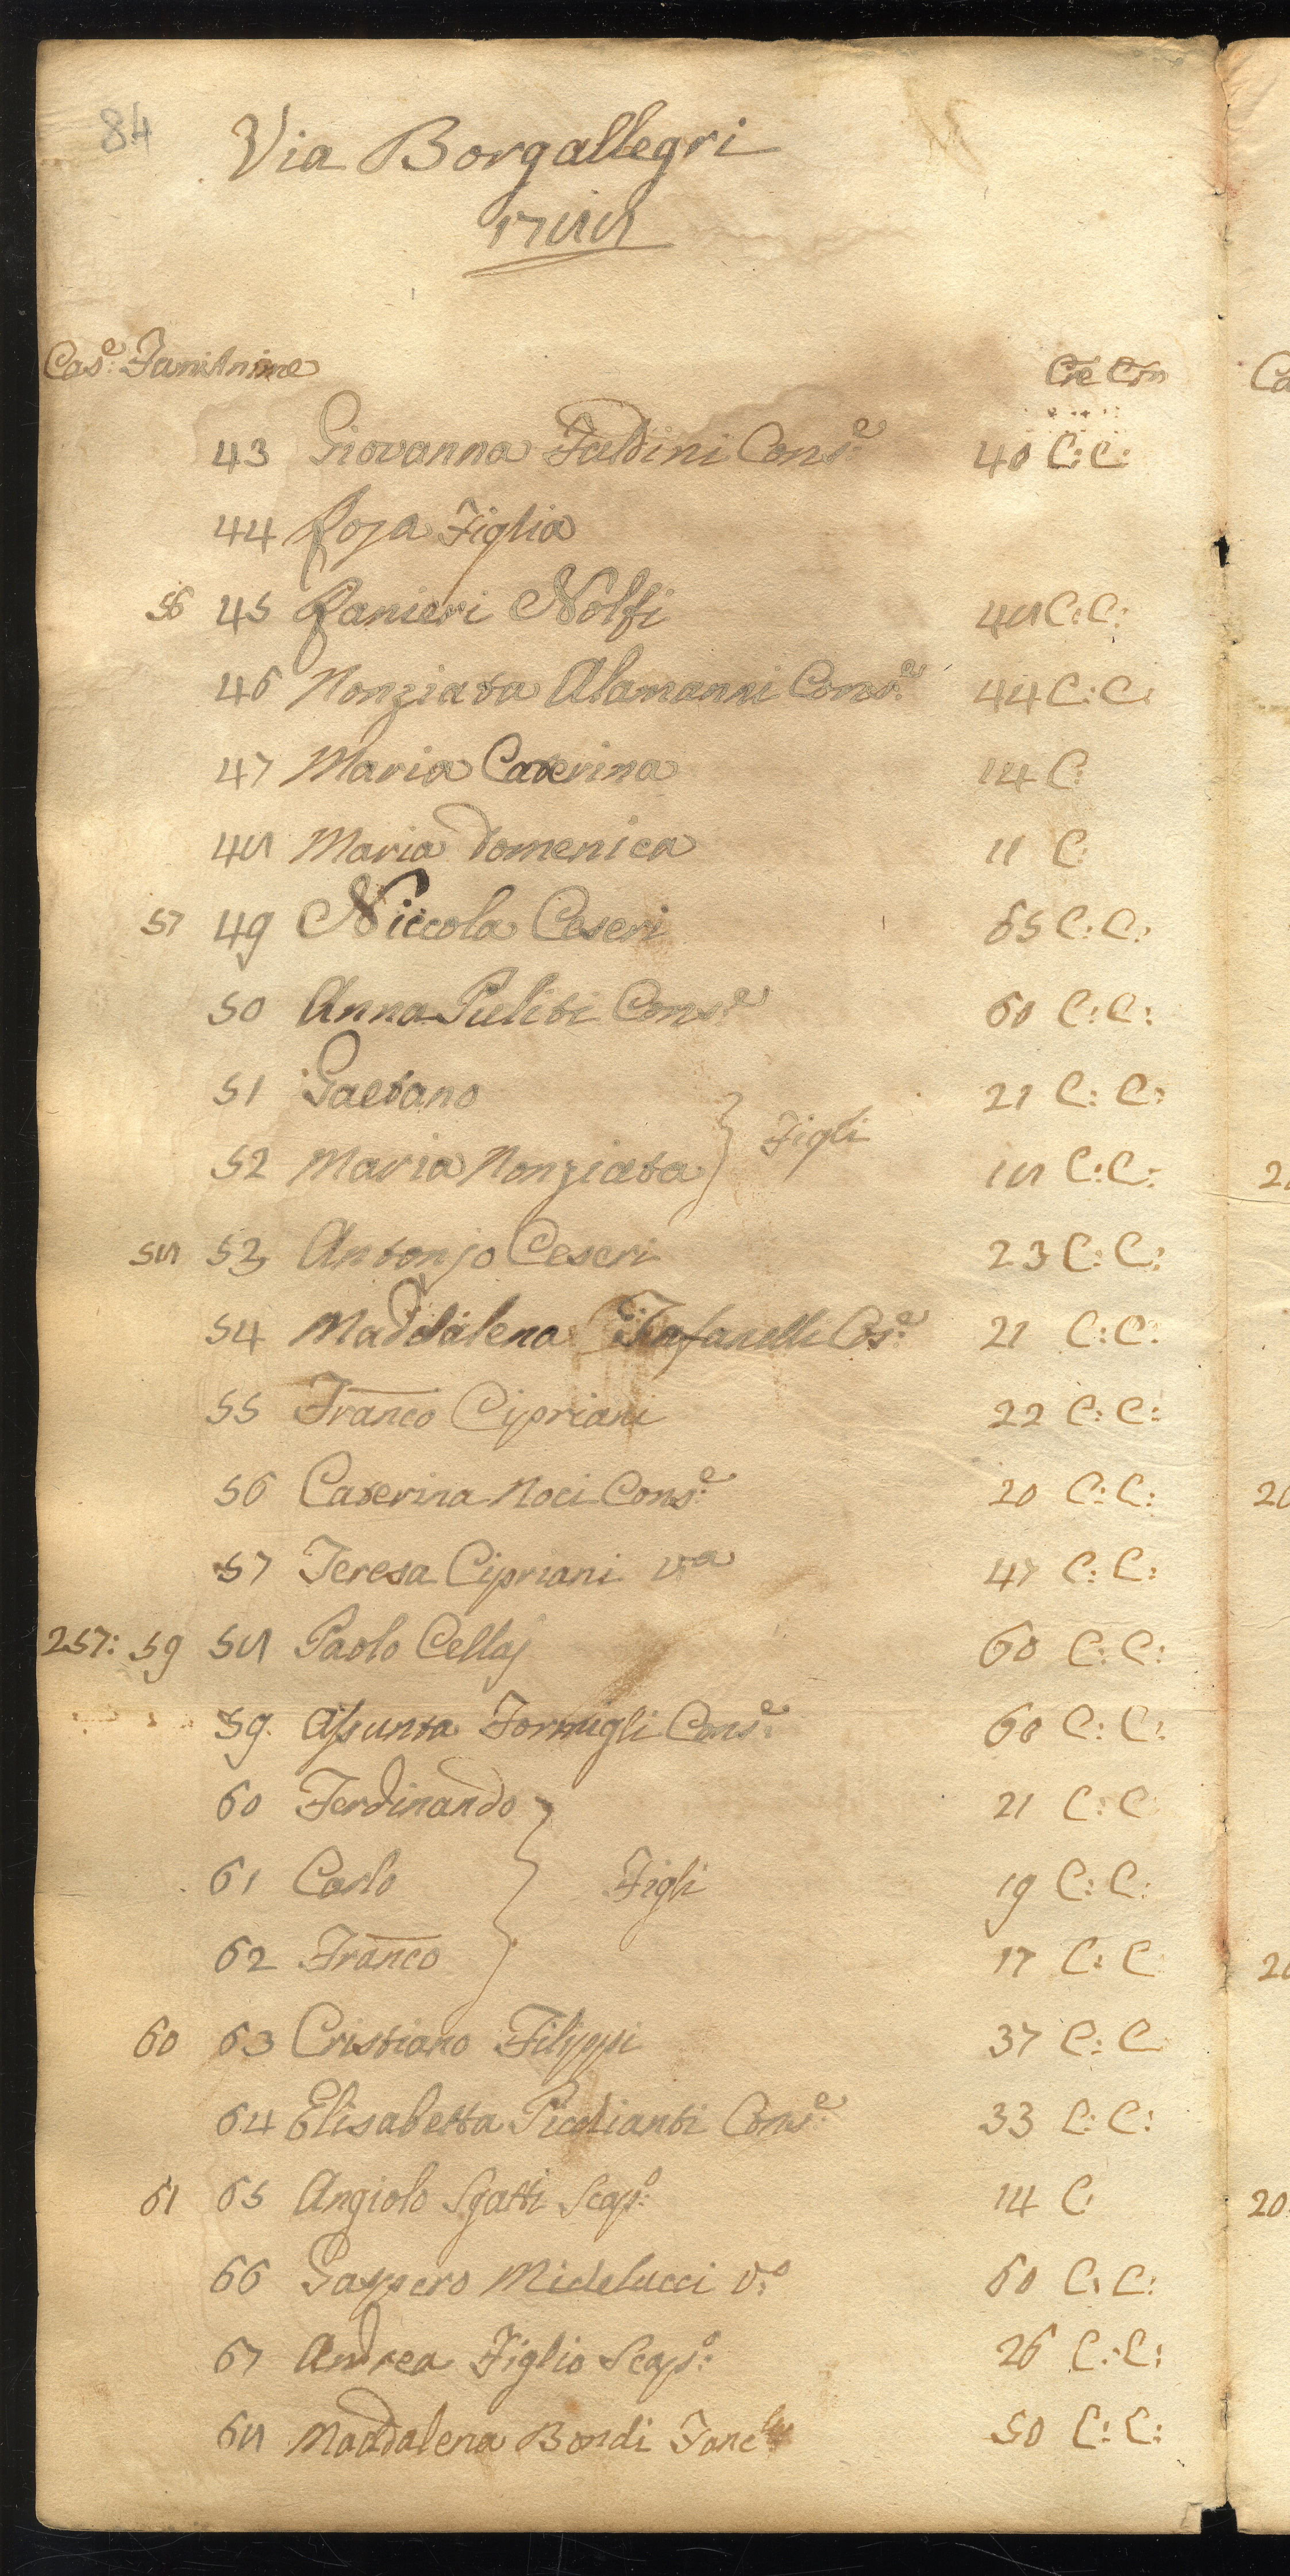 84
Via Borgallegri
1788
Cas.e Fam Anime Cre Com
43 Giovanna Faldini Cons.e 40 C: C:
44 Rosa Figlia
56 45 Ranieri Nolfi 48 C: C:
46 Nonziata Alamanni Cons.e 44 C: C:
47 Maria Caterina 14 C:
48 Maria Domenica 11 C:
57 49 Niccola Ceseri 65 C: C:
50 Anna Puliti Cons.e 60 C: C:
51 Gaetano 21 C: C:
} Figli
52 Maria Nonziata 18 C: C:
58 53 Antonjo Ceseri 23 C: C:
54 Maddalena Cos.e 21 C: C:
55 Franco Cipriani 22 C: C:
56 Caterina Noci Cons.e 20 C: C:
57 Teresa Cipriani v.a 47 C: C:
257: 59 58 Paolo Cellaj 60 C: C:
59. Assunta Formigli Cons.e 60 C: C:
60 Ferdinando 21 C: C
61 Carlo } Figli 19 C: C:
62 Franco 17 C: C
60 63 Cristiano Filippi 37 C: C
64 Elisabetta Cons.e 33 C: C:
61 65 Angiolo Sgatti Scap.o 14 C
66 Gaspero Midelucci V.o 60 C: C:
67 Andrea Figlio Scap.o 26 C: C:
68 Maddalena Bondi 50 C: C: